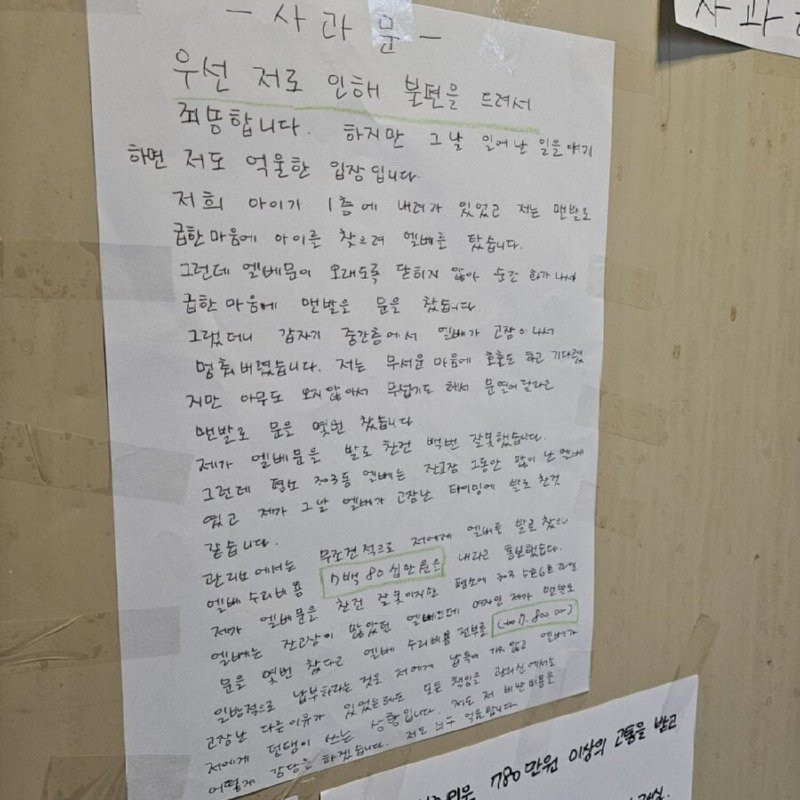 - 사과문 -
우선 저로 인해 불편을 드려서
죄송합니다. 하지만 그날 일어난 일을 얘기
하면 저도 억울한 입장입니다.
저희 아이가 1층에 내려가 있었고 저는 맨발로
급한마음에 아이를 찾으려 엘베를 탔습니다.
그런데 엘베문이 오래도록 닫히지 않아 순간 화가나서
급한마음에 맨발로 문을 찼습니다
그랬더니 갑자기 중간층에서 엘베가 고장이나서
멈춰버렸습니다. 저는 무서운 마음에 호출도 하고 기다렸
지만 아무도 오지않아서 무섭기도 해서 문열어달라고
맨발로 문을 몇번 찼습니다.
제가 엘베문을 발로 찬건 백번 잘못했습니다.
그런데 평소 엘베는 잔고장 그동안 많이 난 엘베
였고 제가 그날 엘베가 고장난 타이밍에 발로 찬것
같습니다.
관리보에서는 무조건적으로 저에게 엘베를 발로 찼으니
엘베 수리비용 7백80십만원을 내라고 통보했습니다.
제가 엘베문을 찬건 잘못이지만 평소에
엘베는 잔고장이 많았던 엘베인데 여자인 제가 맨발로
문을 몇번 찼다고 엘베 수리비용 전부를
일방적으로 납부하라는 것은 저에게 납득이 가지 않고 엘베가
고장난 다른이유가 있었는데도 모든 책임을 관리실에서도
저에게 덤탱이 쓰는 상황입니다. 저도 저 비싼 비용을
어떻게 감당을 하겠습니다. 저도 너무 억울합니다
사과
780만원 이상의 고통을 받고